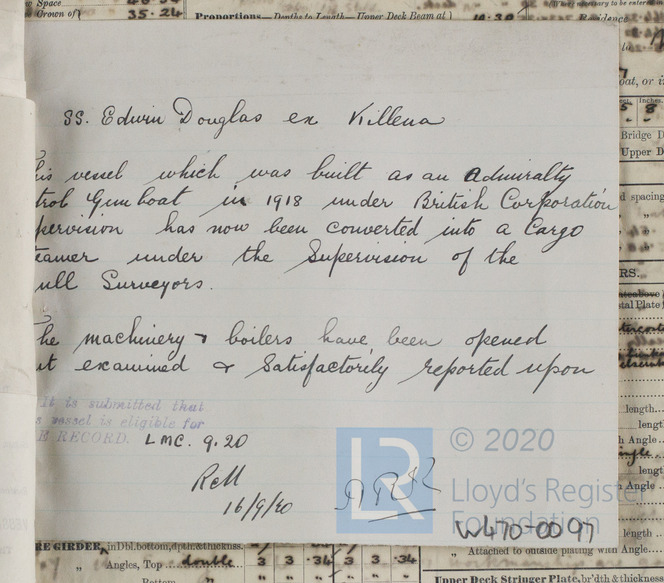 35.24
Proportions—Depths to Length—Upper Deck Beam at
Residence
SS. Edwin Douglas ex Killena
his vessel which was built as an Admiralty
trol Gun boat in 1918 under British Corporation
pervision has now been converted into a Cargo
teamer under the Supervision of the
ull Surveyors.
he machinery & boilers have been opened
ut examined & Satisfactorily reported upon
It is submitted that
s vessel is eligible for
E RECORD. LMC. 9.20
16/9/20
© 2020
LR
Lloyd's Register
Foundation
W470-0097
Bridge D
Upper D
spacing
RS.
length
length
Angle
length
Angle
length
Angle
RE GIRDER, in Dbl. bottom, dpth & thickness.
Angles, Top double 3 3 .34 3 3 .34
Bottom
" Attached to outside plating with Angle
Upper Deck Stringer Plate, br'dth & thickness